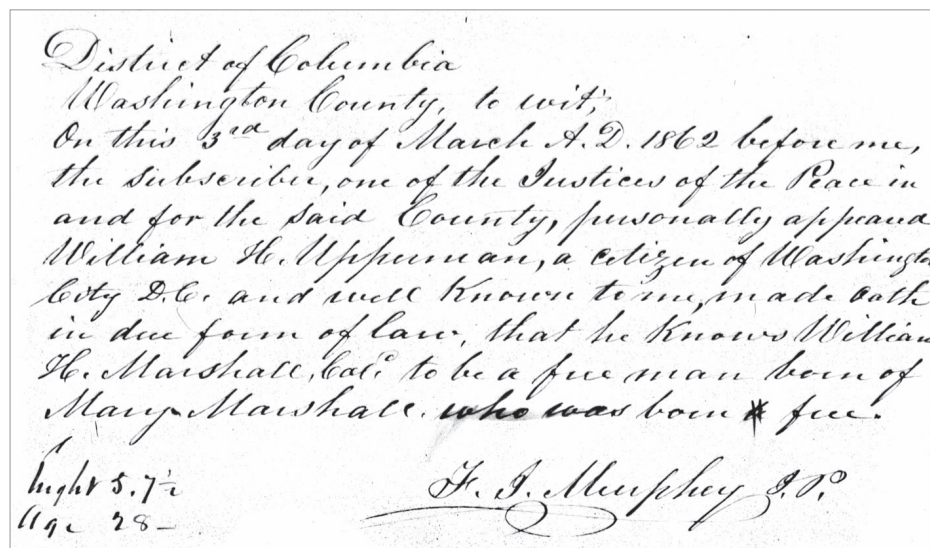 District of Columbia
Washington County, to wit;
On this 3rd day of March A.D. 1862 before me,
the subscriber, one of the Justices of the Peace in
and for the said County, personally appeared
William H. Upperman, a citizen of Washington
City D.C. and well Known to me, made oath
in due form of law, that he Knows William
H. Marshall, Col. to be a free man born of
Mary Marshall. who was born free.
hight 5.7½
Age 28—
F. I. Murphey J.P.